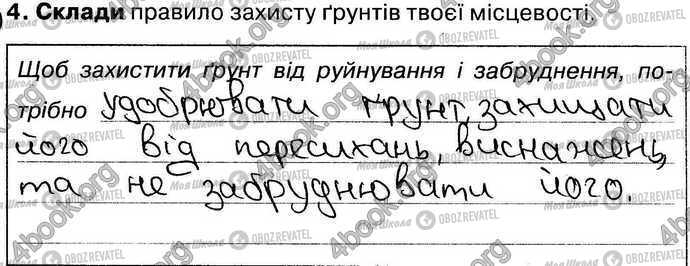 4. Склади правило захисту ґрунтів твоєї місцевості.
Щоб захистити ґрунт від руйнування і забруднення, по-
трібно удобрювати ґрунт, захищати
його від пересихань, виснажень
та не забруднювати його.